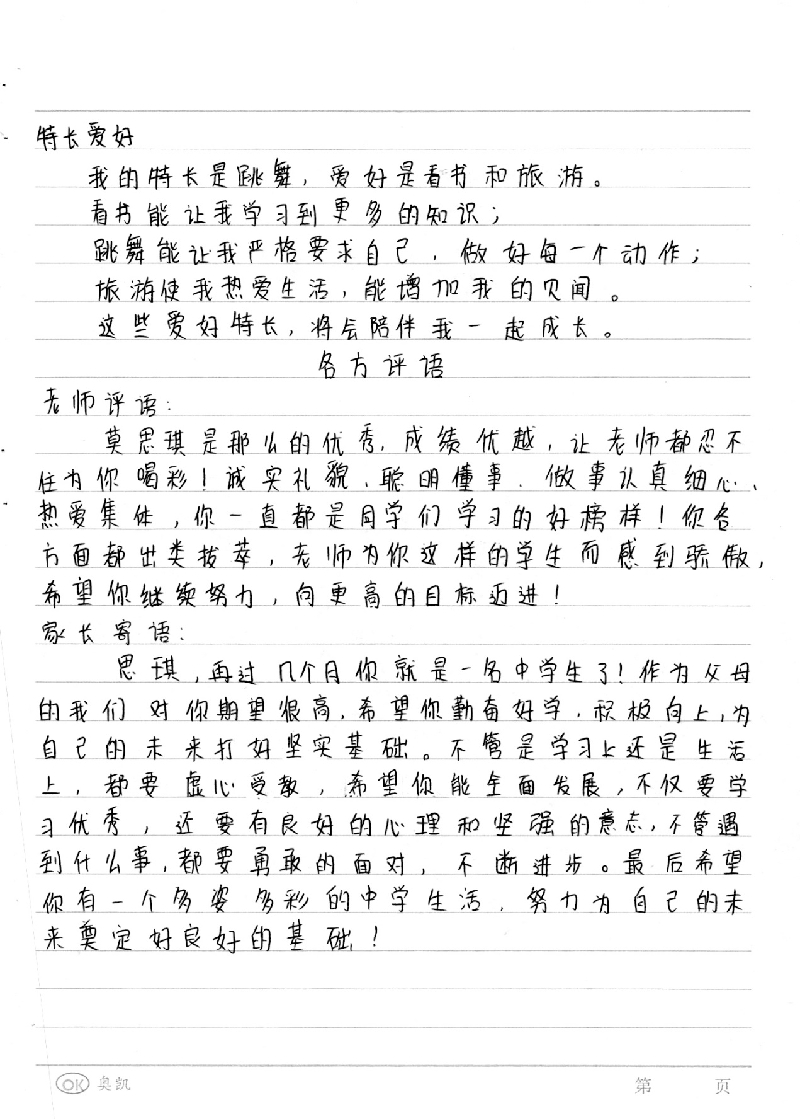 特长爱好
我的特长是跳舞，爱好是看书和旅游。
看书能让我学习到更多的知识；
跳舞能让我严格要求自己，做好每一个动作；
旅游使我热爱生活，能增加我的见闻。
这些爱好特长，将会陪伴我一起成长。
各方评语
老师评语：
莫思琪是那么的优秀，成绩优越，让老师都忍不
住为你喝彩！诚实礼貌、聪明懂事、做事认真细心、
热爱集体，你一直都是同学们学习的好榜样！你各
方面都出类拔萃，老师为你这样的学生而感到骄傲，
希望你继续努力，向更高的目标迈进！
家长寄语：
思琪，再过几个月你就是一名中学生了！作为父母
的我们对你期望很高，希望你勤奋好学，积极向上，为
自己的未来打好坚实基础。不管是学习上还是生活
上，都要虚心受教，希望你能全面发展，不仅要学
习优秀，还要有良好的心理和坚强的意志，不管遇
到什么事，都要勇敢的面对，不断进步。最后希望
你有一个多姿多彩的中学生活，努力为自己的未
来奠定好良好的基础！
OK 奥凯 第 页